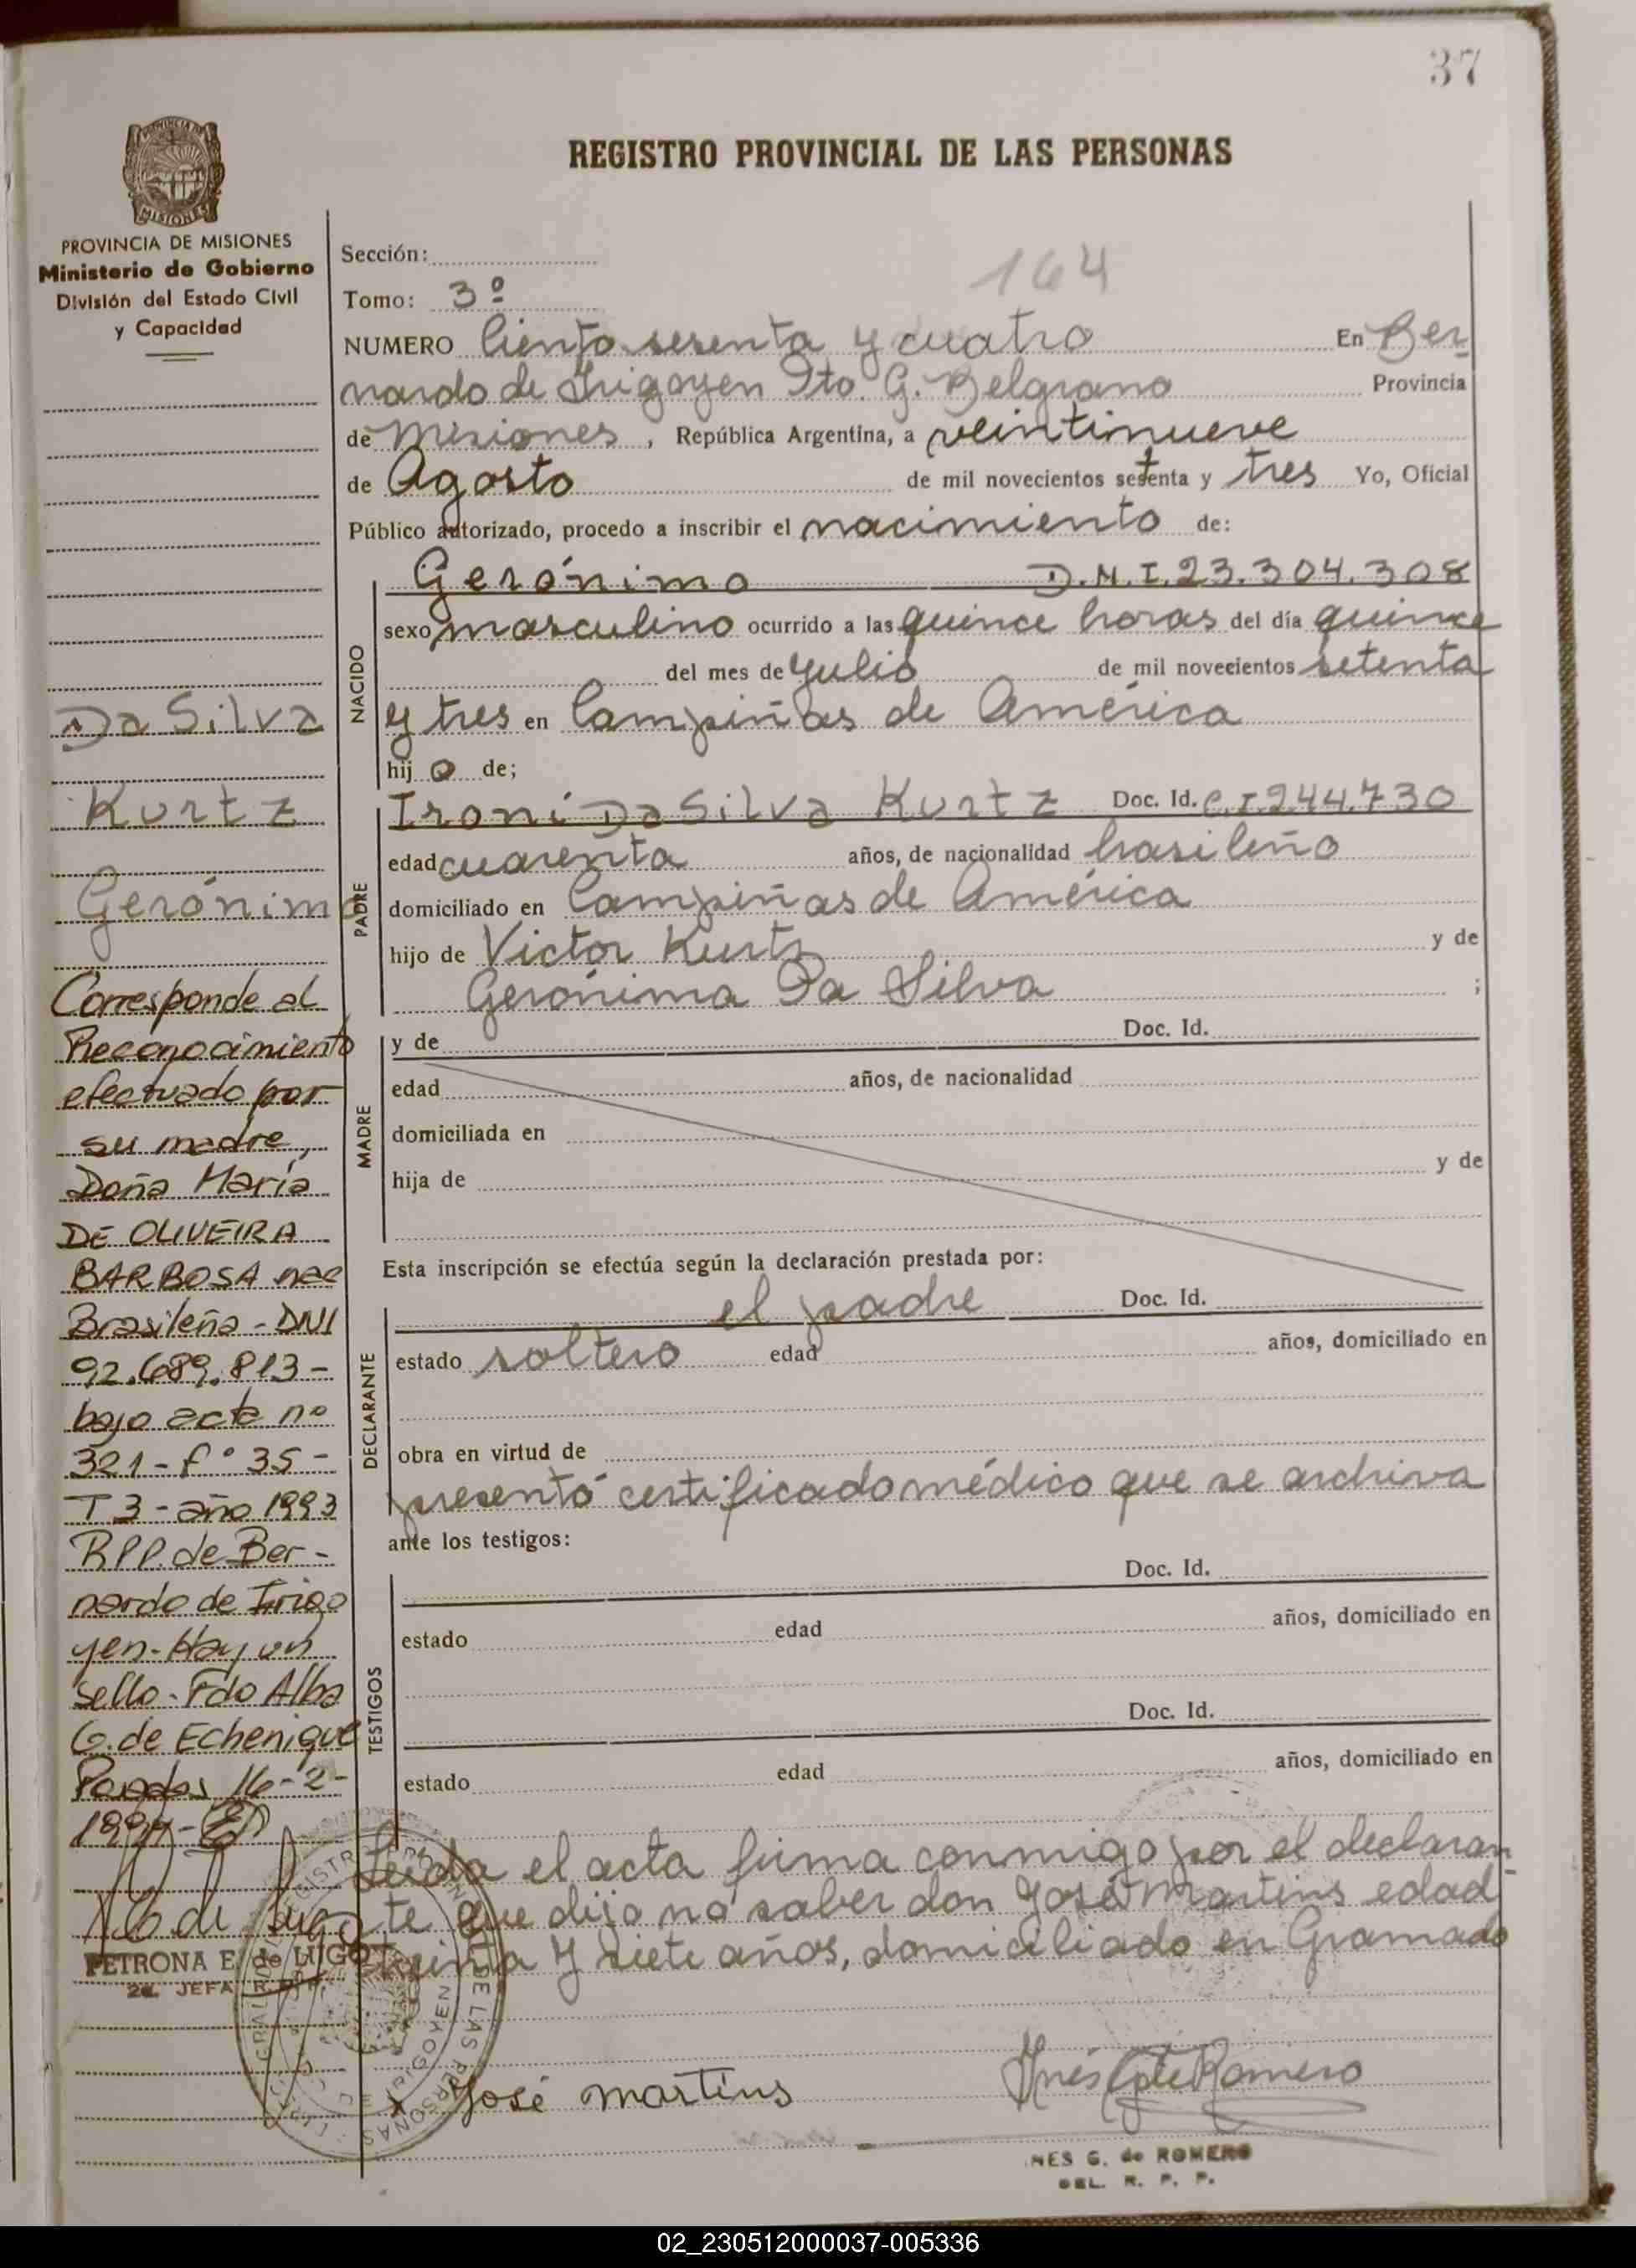 37
REGISTRO PROVINCIAL DE LAS PERSONAS
PROVINCIA DE MISIONES
Ministerio de Gobierno
División del Estado Civil
y Capacidad
Da Silva
Kurtz
Gerónimo
Corresponde al
Reconocimiento
efectuado por
su madre,
Doña María
DE OLIVEIRA
BARBOSA nac
Brasileña - DNI
92.689.813 -
bajo acta nº
321 - fº 35 -
T 3 - año 1993
RPP. de Ber-
nardo de Irigo
yen. Hay un
sello - Fdo Alba
G. de Echenique
Posadas 16-2-
PETRONA E. de LUGO
2a. JEFA R.P.P.
Sección:
164
Tomo: 3º
NUMERO Ciento sesenta y cuatro En Ber
nardo de Irigoyen Dto. G. Belgrano Provincia
de Misiones, República Argentina, a veintinueve
de Agosto de mil novecientos setenta y tres Yo, Oficial
Público autorizado, procedo a inscribir el nacimiento de:
NACIDO
Gerónimo D.N.I. 23.304.308
sexo masculino ocurrido a las quince horas del día quince
del mes de Julio de mil novecientos setenta
y tres en Campiñas de América
hijo de;
PADRE
Ironi Da Silva Kurtz Doc. Id. C.I 244.730
edad cuarenta años, de nacionalidad brasileño
domiciliado en Campiñas de América
hijo de Victor Kurtz y de
Gerónima Da Silva ;
MADRE
y de Doc. Id.
edad años, de nacionalidad
domiciliada en
hija de y de
Esta inscripción se efectúa según la declaración prestada por:
DECLARANTE
el padre Doc. Id.
estado soltero edad años, domiciliado en
obra en virtud de
presentó certificado médico que se archiva
ante los testigos:
TESTIGOS
Doc. Id.
estado edad años, domiciliado en
Doc. Id.
estado edad años, domiciliado en
Leida el acta firma conmigo por el declaran
te que dijo no saber don José Martins edad
treinta y siete años, domiciliado en Gramado
José Martins
Inés G de Romero
INES G. de ROMERO
DEL. R. P. P.
02_230512000037-005336